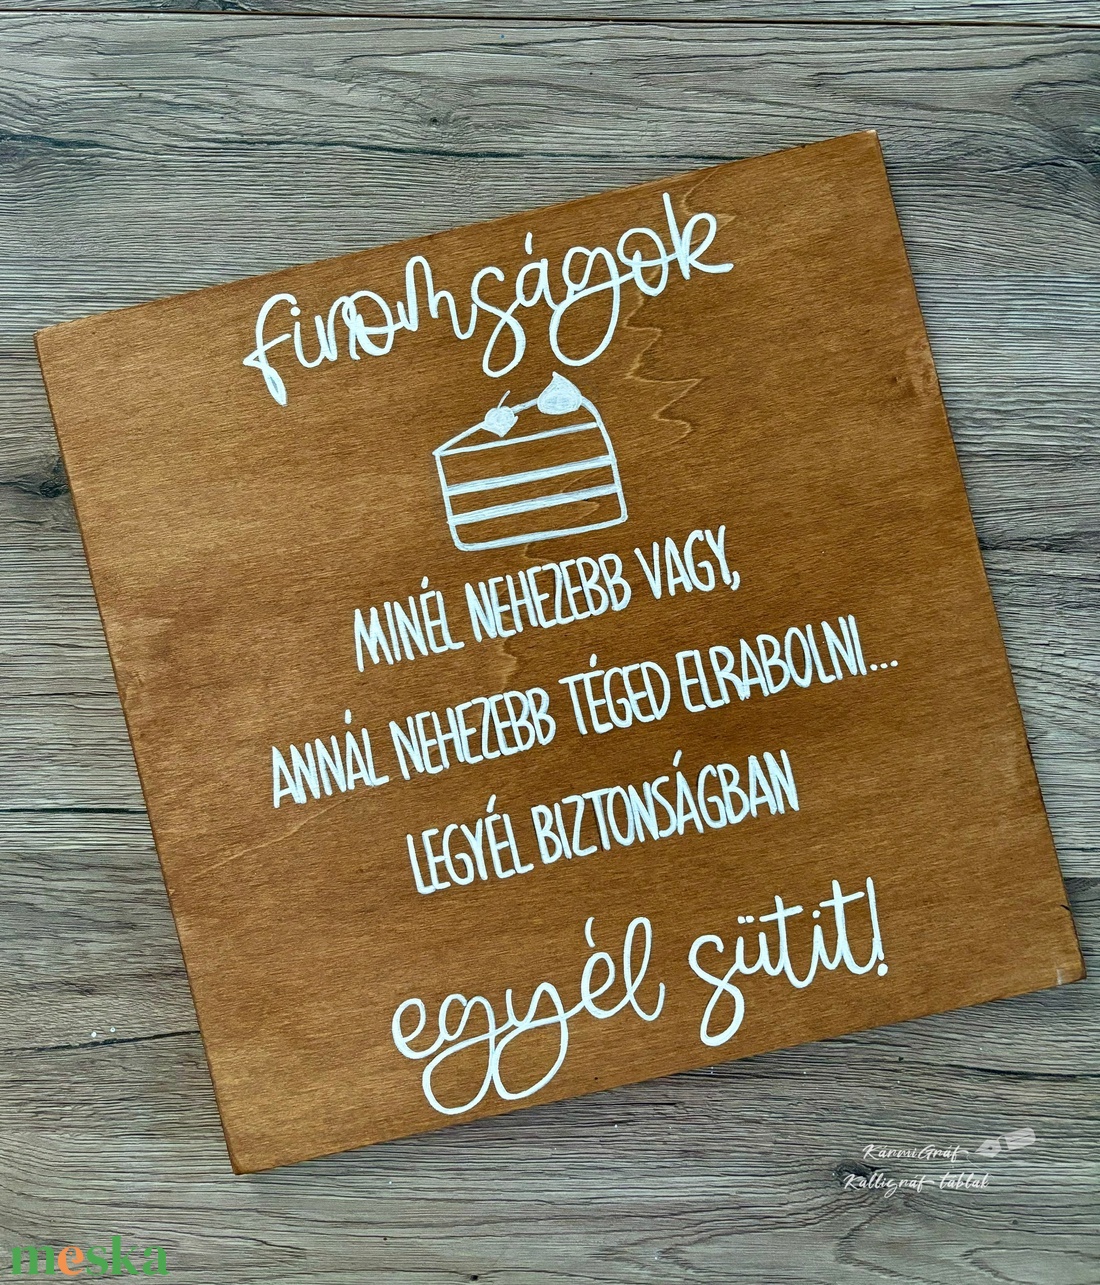 finomságok
MINÉL NEHEZEBB VAGY,
ANNÁL NEHEZEBB TÉGED ELRABOLNI...
LEGYÉL BIZTONSÁGBAN
egyél sütit!
KármiGráf
Kalligráf táblák
meska